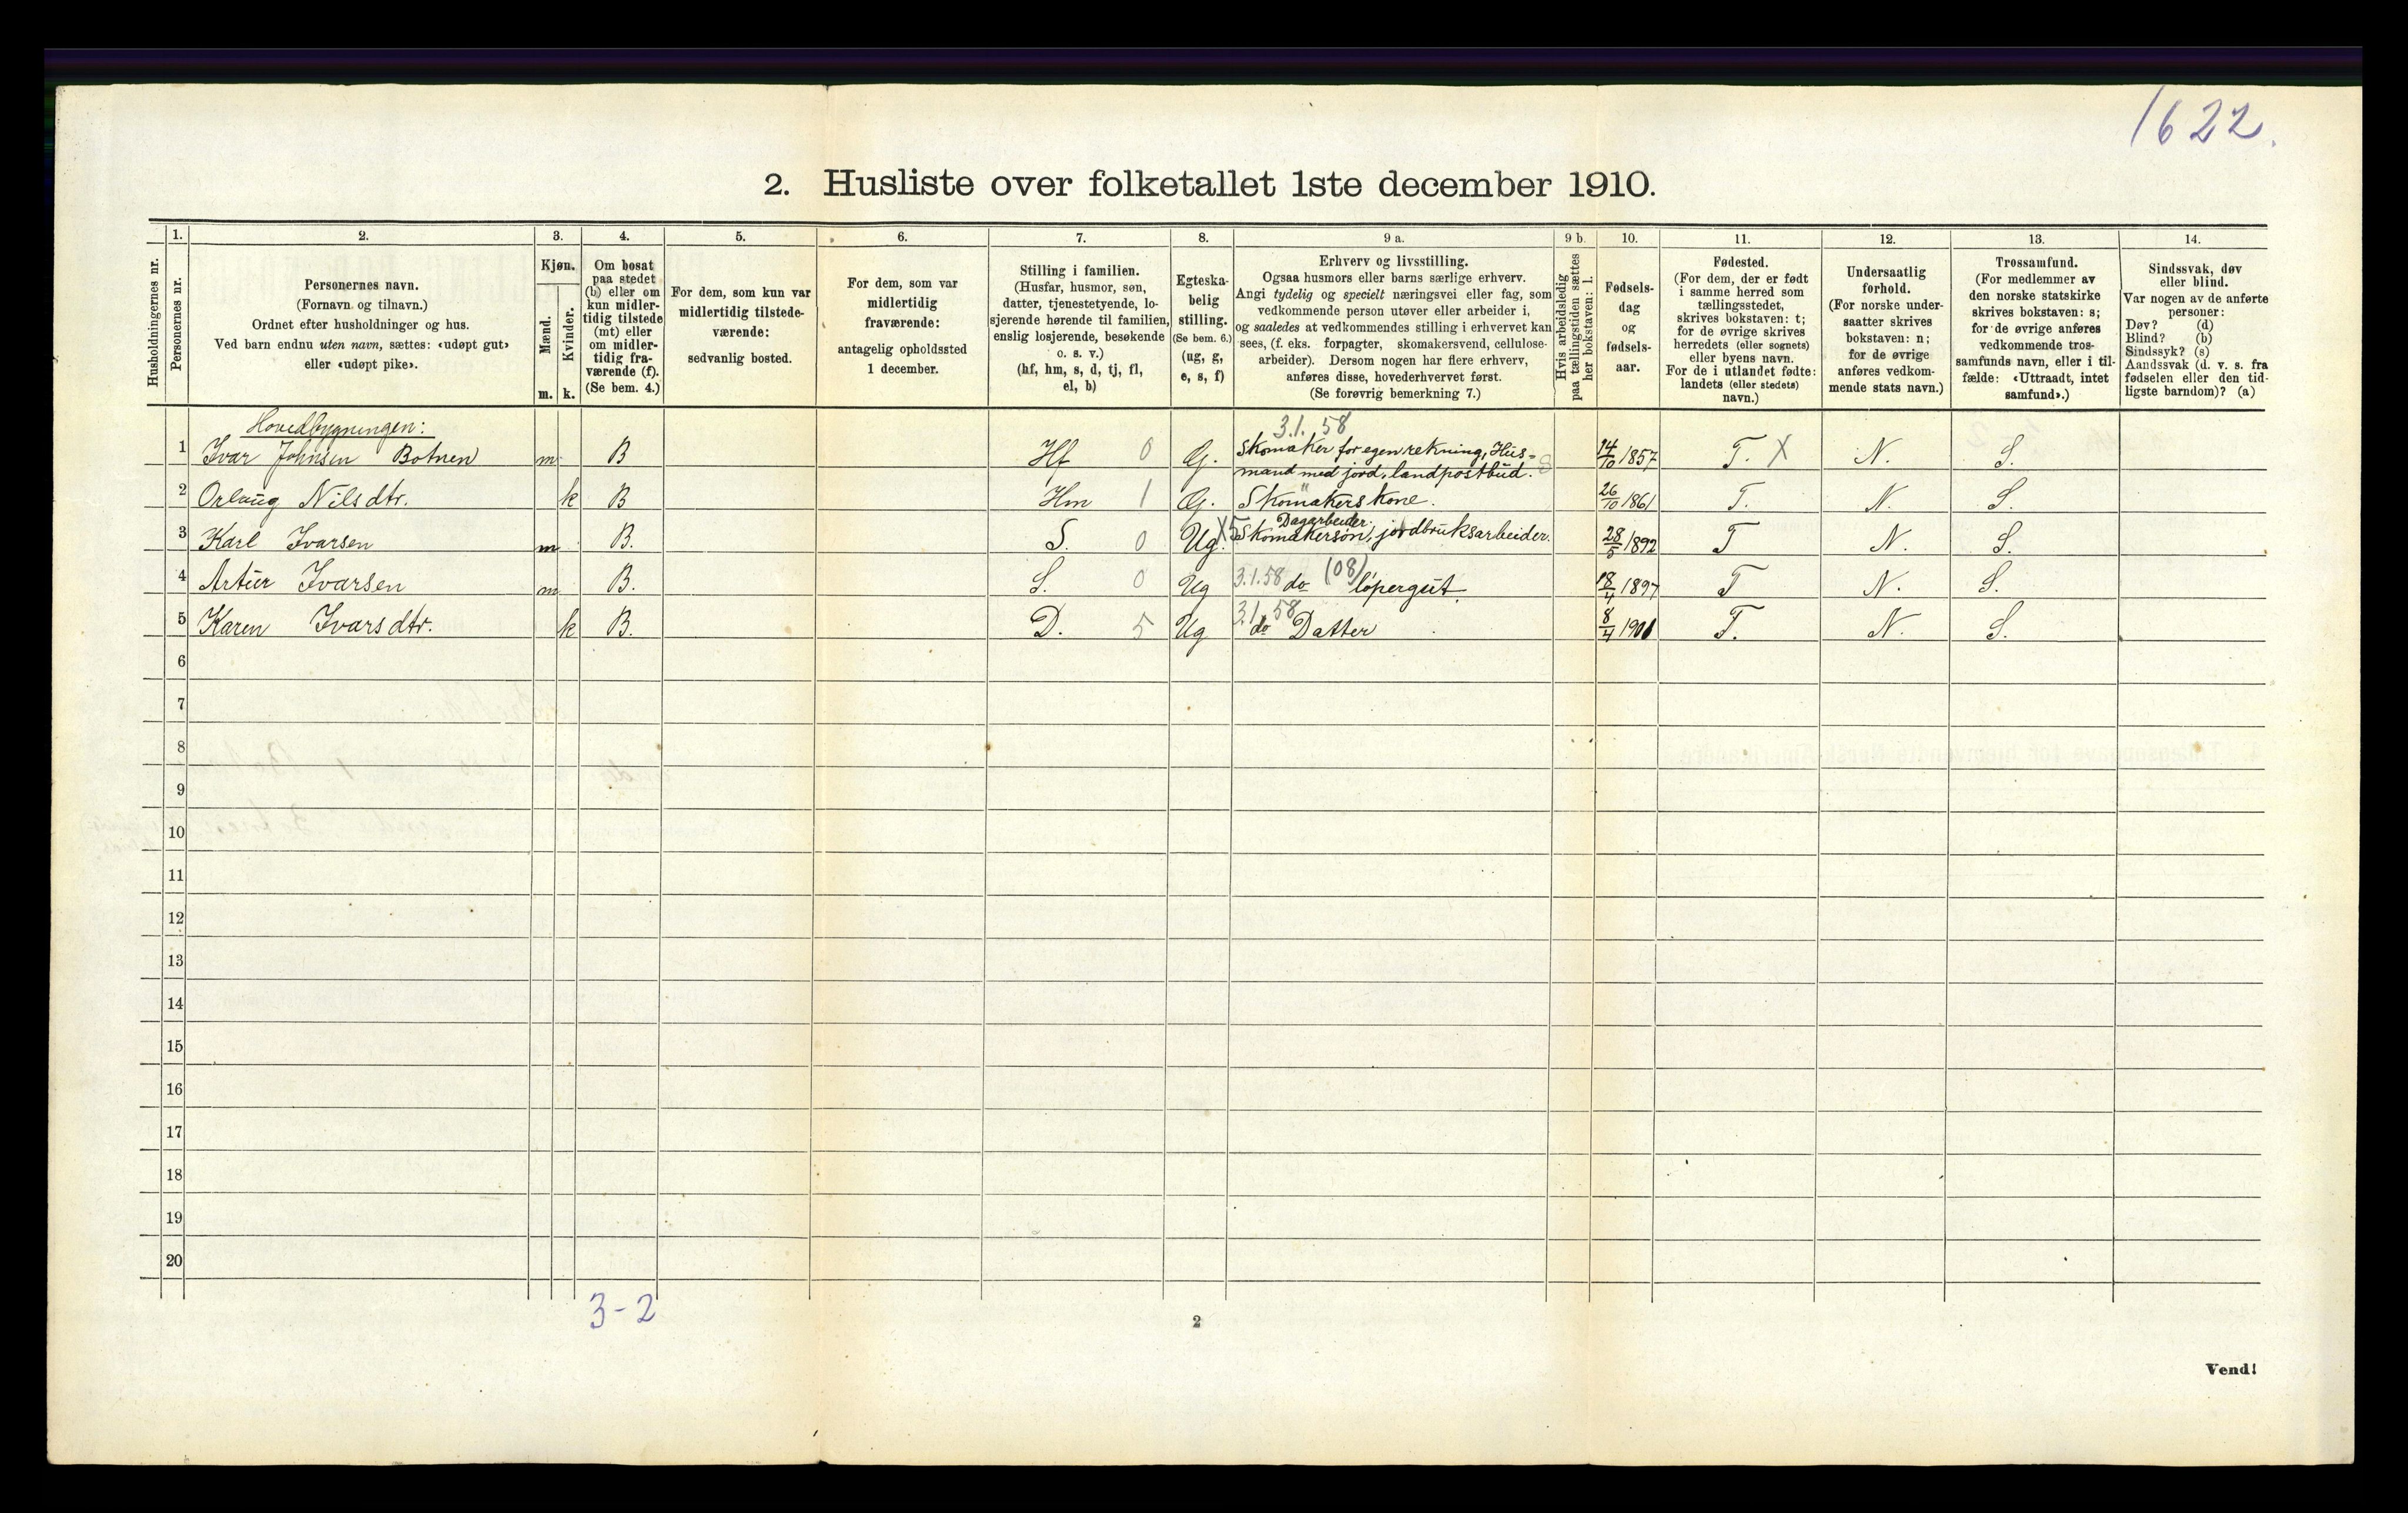 1622.
2. Husliste over folketallet 1ste december 1910.
Husholdningernes nr.
1.
Personernes nr.
2.
Personernes navn.
(Fornavn og tilnavn.)
Ordnet efter husholdninger og hus.
Ved barn endnu uten navn, sættes: «udøpt gut»
eller «udøpt pike».
3.
Kjøn.
Mænd.
Kvinder.
m. k.
4.
Om bosat
paa stedet
(b) eller om
kun midler-
tidig tilstede
(mt) eller
om midler-
tidig fra-
værende (f).
(Se bem. 4.)
5.
For dem, som kun var
midlertidig tilstede-
værende:
sedvanlig bosted.
6.
For dem, som var
midlertidig
fraværende:
antagelig opholdssted
1 december.
7.
Stilling i familien.
(Husfar, husmor, søn,
datter, tjenestetyende, lo-
sjerende hørende til familien,
enslig losjerende, besøkende
o. s. v.)
(hf, hm, s, d, tj, fl,
el, b)
8.
Egteska-
belig
stilling.
(Se bem. 6.)
(ug, g,
e, s, f)
9 a.
Erhverv og livsstilling.
Ogsaa husmors eller barns særlige erhverv.
Angi tydelig og specielt næringsvei eller fag, som
vedkommende person utøver eller arbeider i,
og saaledes at vedkommendes stilling i erhvervet kan
sees, (f. eks. forpagter, skomakersvend, cellulose-
arbeider). Dersom nogen har flere erhverv,
anføres disse, hovederhvervet først.
(Se forøvrig bemerkning 7.)
9 b.
Hvis arbeidsledig
paa tællingstiden sættes
her bokstaven: l.
10.
Fødsels-
dag
og
fødsels-
aar.
11.
Fødested.
(For dem, der er født
i samme herred som
tællingsstedet,
skrives bokstaven: t;
for de øvrige skrives
herredets (eller sognets)
eller byens navn.
For de i utlandet fødte:
landets (eller stedets)
navn.)
12.
Undersaatlig
forhold.
(For norske under-
saatter skrives
bokstaven: n;
for de øvrige
anføres vedkom-
mende stats navn.)
13.
Trossamfund.
(For medlemmer av
den norske statskirke
skrives bokstaven: s;
for de øvrige anføres
vedkommende tros-
samfunds navn, eller i til-
fælde: «Uttraadt, intet
samfund».)
14.
Sindssvak, døv
eller blind.
Var nogen av de anførte
personer:
Døv? (d)
Blind? (b)
Sindssyk? (s)
Aandssvak (d. v. s. fra
fødselen eller den tid-
ligste barndom)? (a)
Hovedbygningen:
3.1.58
1 Ivar Johnsen Botnen m B Hf 0 G. Skomaker for egen rekning, Hus-
mand med jord, landpostbud. 14/10 1857 T. X N. S.
2 Orlaug Nilsdtr. k B Hm 1 G. Skomakerskone. 26/10 1861 T. N. S.
Dagarbeider.
3 Karl Ivarsen m B. S. 0 Ug. X5 Skomakersøn, jordbruksarbeider. 28/5 1892 T N. S.
4 Artur Ivarsen m B. S. 0 Ug 3.1.58 do (08) løpergut. 18/4 1897 T N. S.
5 Karen Ivarsdtr. k B. D. 5 Ug 3.1.58 do Datter 8/4 1901 T. N. S.
6
7
8
9
10
11
12
13
14
15
16
17
18
19
20
3-2
2
Vend!